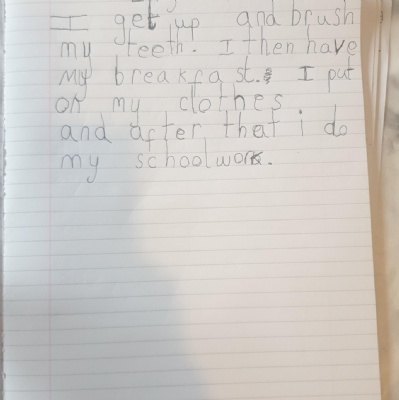 I get up and brush
my teeth. I then have
my breakfast. I put
on my clothes
and after that i do
my schoolwork.